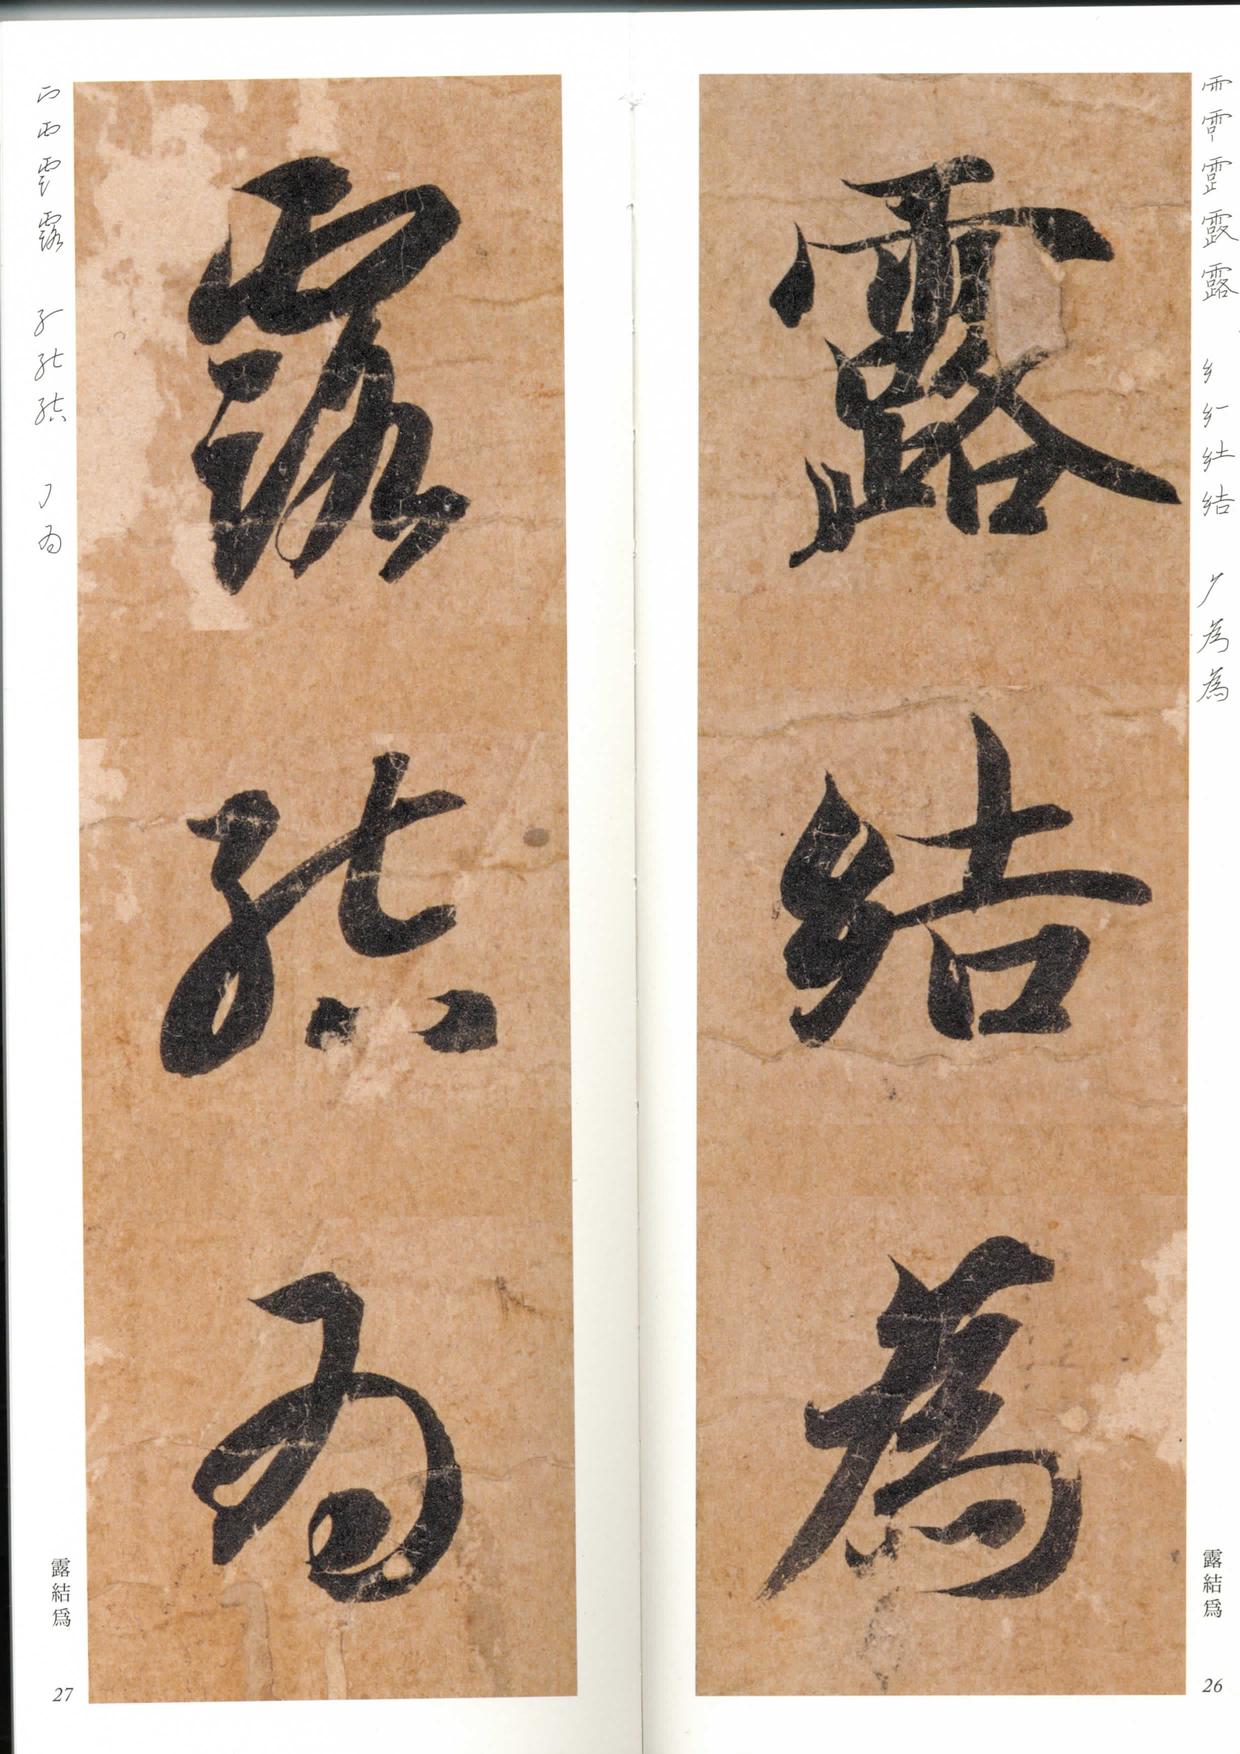 露結爲
露結爲
26
露結爲
露結爲
27